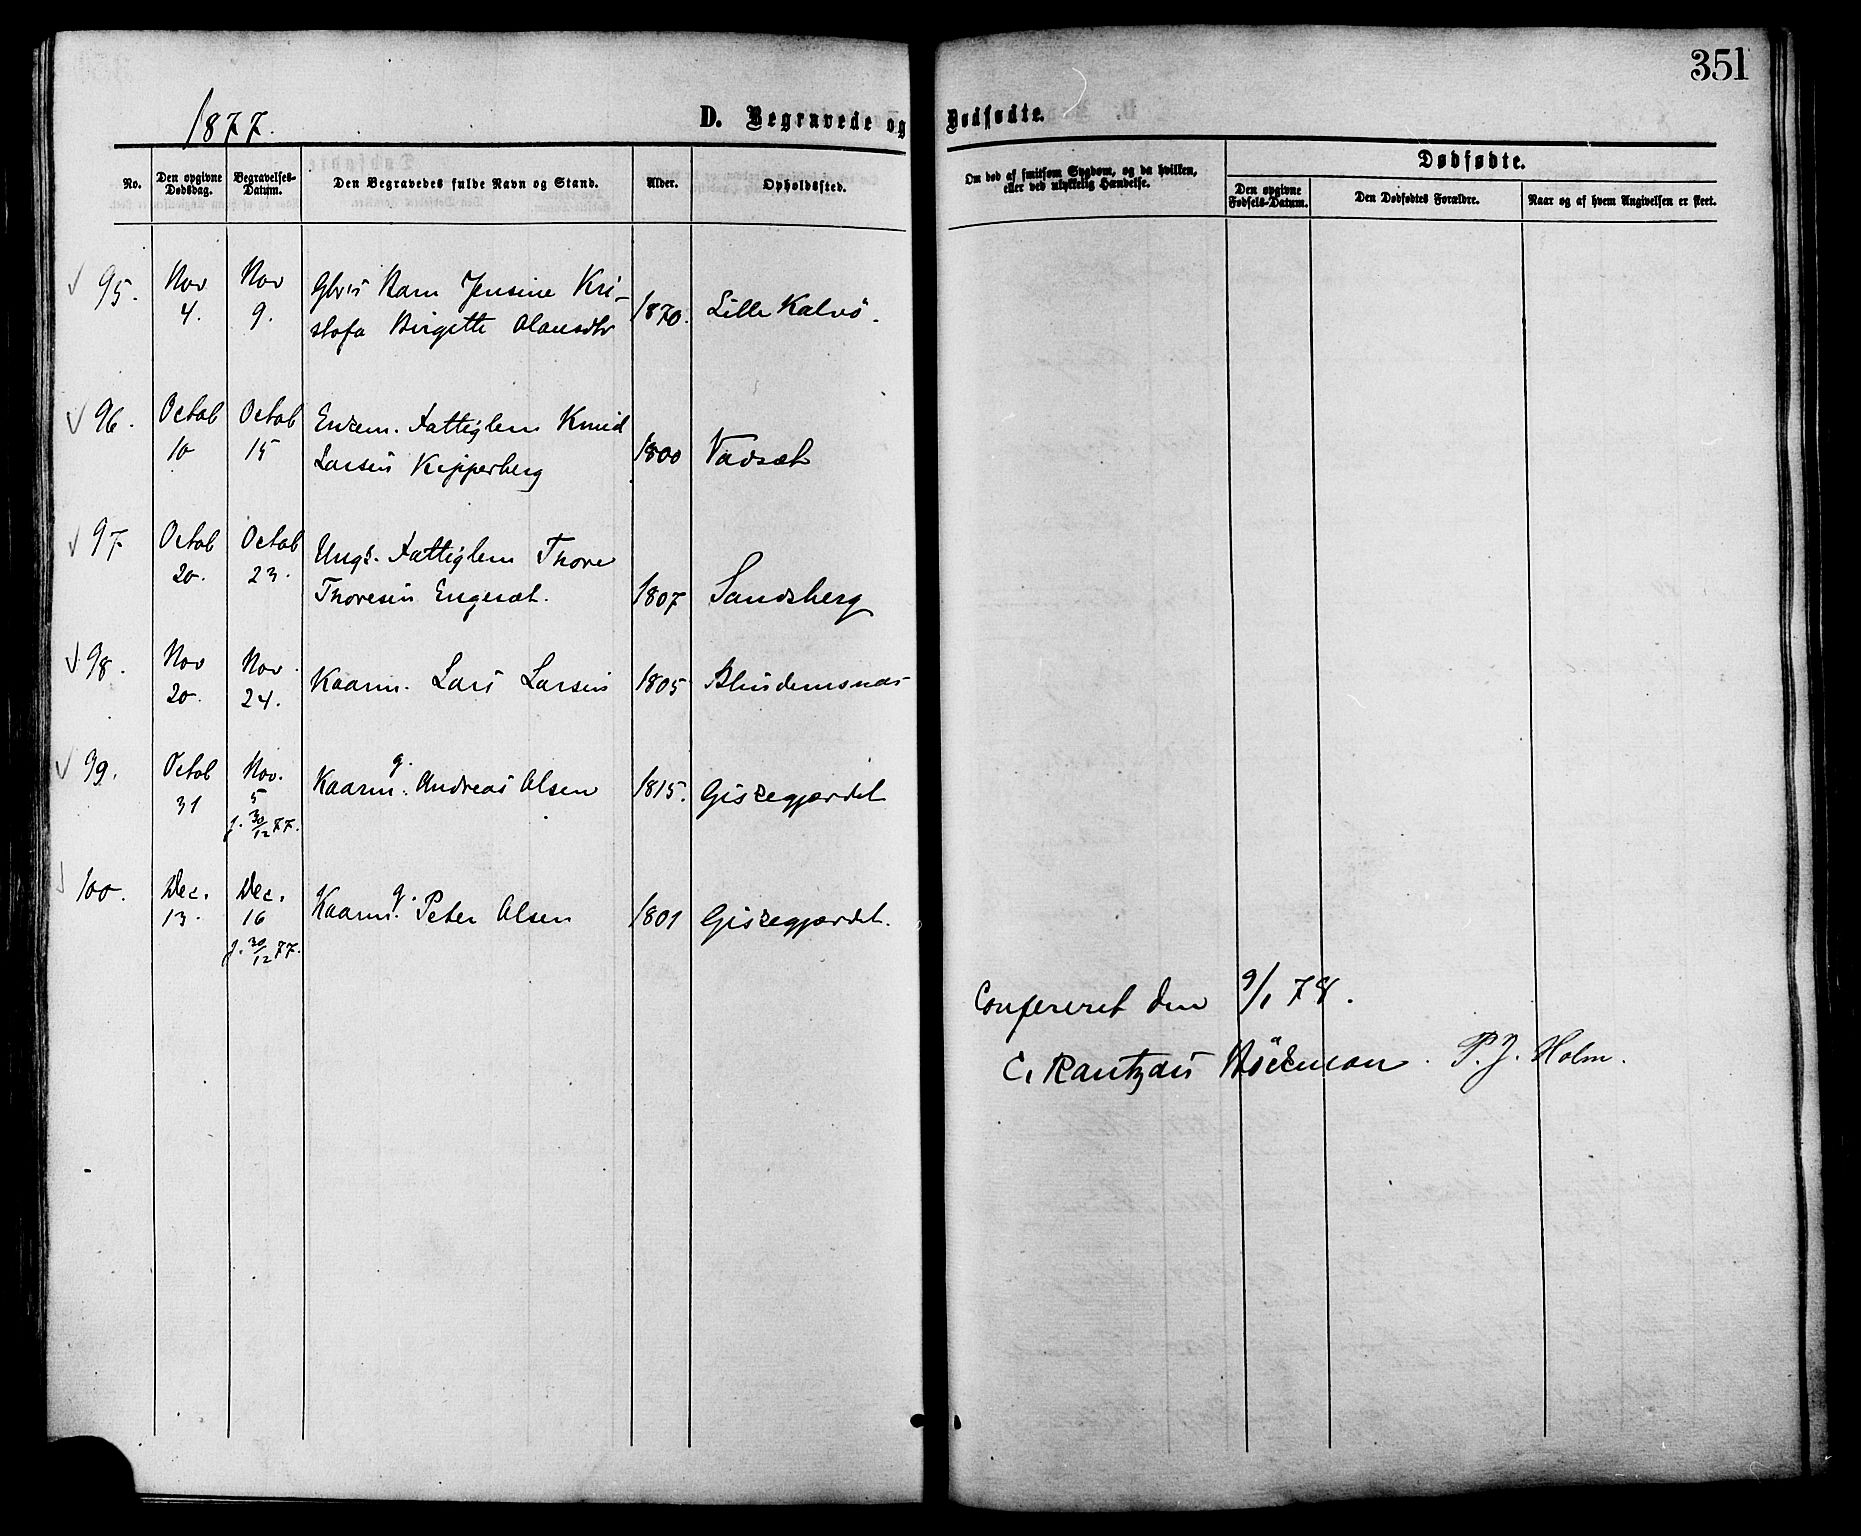 351
1877.
D. Begravede og Dødfødte.
No.
Den opgivne Dødsdag.
Begravelses-Datum.
Den Begravedes fulde Navn og Stand.
Alder.
Opholdssted.
Om død af smitsom Sygdom, og da hvilken,
eller ved ulykkelig Hændelse.
Dødfødte.
Den opgivne Fødsels-Datum.
Den Dødfødtes Forældre.
Naar og af hvem Angivelsen er skeet.
95. Nov 4. Nov 9. Barn Jensine Kri-
stofa Birgitte Olausdtr 1870. Lille Kalvö.
96. Octob 10 Octob 15 Enkem. Fattiglem Knud
Larsen Kipperberg 1800 Vadsæt
97 Octob 20. Octob 23. Ungk. Fattiglem Thore
Thoresen Engesæt. 1807 Sandsberg
98. Nov 20. Nov. 24. Kaarm. Lars Larsen 1805 Blindemsnæs
99. Octob 31 Nov. 5 Kaarm. g. Andreas Olsen 1815. Giskegjærdet
j. 30/12 77.
100. Dec. 13. Dec. 16 Kaarm. g. Peter Olsen 1801 Giskegjærdet.
j. 30/12 77.
Confereret den 9/1 78.
C. Rantzau Höckman. P. J. Holm.